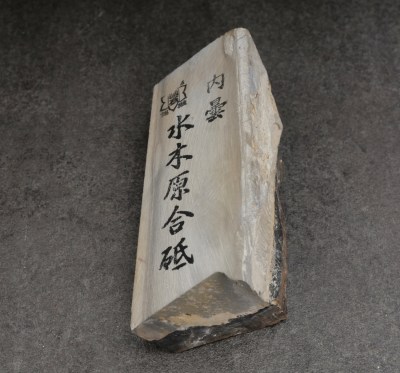 内曇
水木原合砥